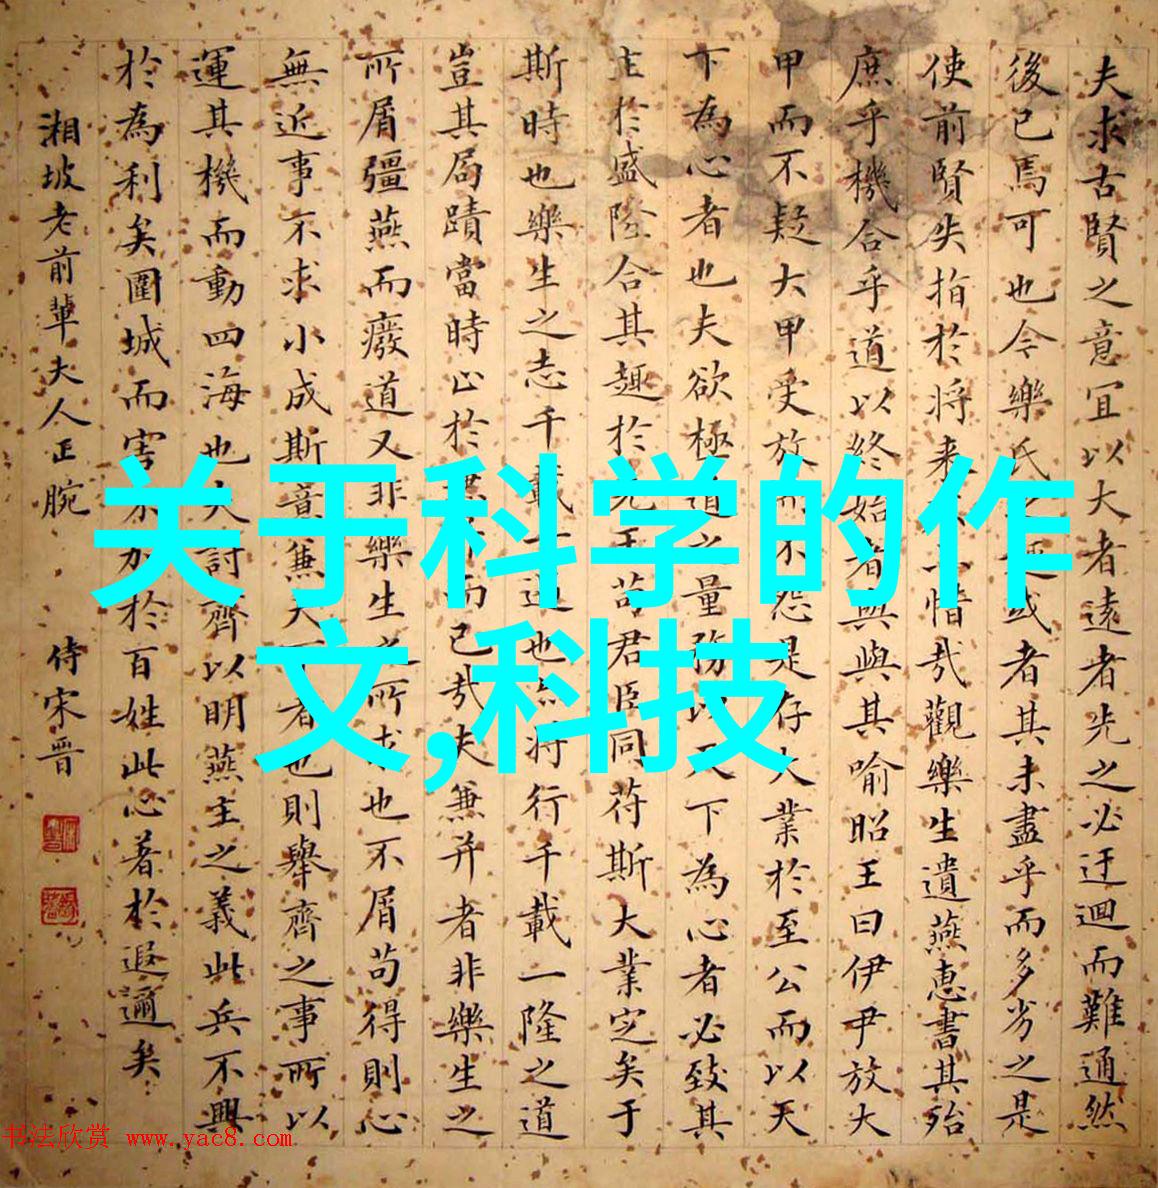 夫求古賢之意宜以大者遠者先之必迂迴而難通然
後已焉可也今樂氏之趣或者其未盡乎而多劣之是
使前賢失指於將来不亦惜哉觀樂生遺燕惠書其殆
庶乎機合乎道以終始者與與其喻昭王曰伊尹放大
甲而不疑大甲受放而不怨是存大業於至公而以天
下為心者也夫欲極道之量務以天下為心者必致其
主於盛隆合其趣於先王苟君臣同苻斯大業定矣于
斯時也樂生之志千載一遇也亦将行千載一隆之道
豈其局蹟當時止於兼并而已哉夫兼并者非樂生之
所屑彊燕而廢道又非樂生之所求也不屑苟得則心
無近事不求小成斯意兼天下者也則舉齊之事所以
運其機而動四海也夫討齊以明燕主之義此兵不興
於為利矣圍城而害不加於百姓此心著於遐邇矣
湘坡老前輩夫人正腕 侍宋晋
关于科学的作
文,科技
书法欣赏 www.yac8.com